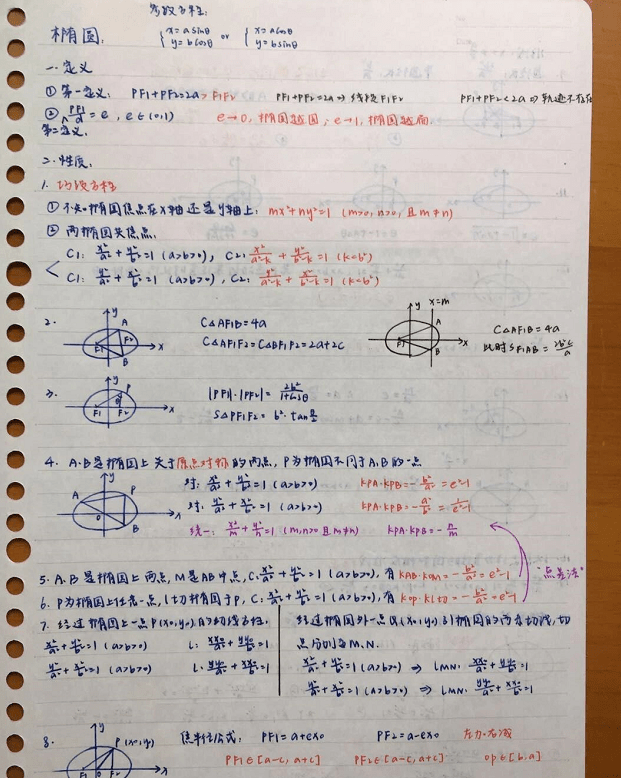 参数方程:
椭圆: { x=asinθ y=bcosθ or { x=acosθ y=bsinθ
一.定义
① 第一定义: PF1+PF2=2a>F1F2 PF1+PF2=2a⇒线段F1F2 PF1+PF2<2a⇒轨迹不存在
② PF1/d=e, e∈(0,1) e→0, 椭圆越圆; e→1, 椭圆越扁.
第二定义.
二.性质.
1.
① 不知椭圆焦点在x轴还是y轴上: mx²+ny²=1 (m>0, n>0, 且m≠n)
② 两椭圆共焦点:
C1: x²/a²+y²/b²=1 (a>b>0), C2: x²/(a²-k)+y²/(b²-k)=1 (k<b²)
C1: y²/a²+x²/b²=1 (a>b>0), C2: y²/(a²-k)+x²/(b²-k)=1 (k<b²)
2. y A F1 F2 B x C△AF1B=4a y x=m A F1 B x C△AF1B=4a
C△AF1F2=C△BF1F2=2a+2c 此时S F1AB=2b²c/a
3. y P θ F1 F2 x |PF1|·|PF2|=2b²/(1+cosθ)
S△PF1F2=b²·tanθ/2
4. A.B是椭圆上关于原点对称的两点, P为椭圆不同于A.B的一点
y A P O B x 对: x²/a²+y²/b²=1 (a>b>0) kPA·kPB=-b²/a²=e²-1
对: y²/a²+x²/b²=1 (a>b>0) kPA·kPB=-a²/b²=1/(e²-1)
统一: x²/m+y²/n=1 (m,n>0且m≠n) kPA·kPB=-n/m
5. A.B是椭圆上两点, M是AB中点, C: x²/a²+y²/b²=1 (a>b>0), 有kAB·kOM=-b²/a²=e²-1 "点差法"
6. P为椭圆上任意一点, l切椭圆于P, C: x²/a²+y²/b²=1 (a>b>0), 有kOP·kl切=-b²/a²=e²-1
7. 经过椭圆上一点P(x0,y0)的切线方程.
x²/a²+y²/b²=1 (a>b>0) l: xx0/a²+yy0/b²=1
y²/a²+x²/b²=1 (a>b>0) l: yy0/a²+xx0/b²=1
经过椭圆外一点Q(x0,y0)引椭圆的两条切线, 切
点分别为M.N.
x²/a²+y²/b²=1 (a>b>0) ⇒ lMN: xx0/a²+yy0/b²=1
y²/a²+x²/b²=1 (a>b>0) ⇒ lMN: yy0/a²+xx0/b²=1
8. y P(x0,y0) 焦半径公式: PF1=a+ex0 PF2=a-ex0 左加右减
PF1∈[a-c,a+c] PF2∈[a-c,a+c] OP∈[b,a]